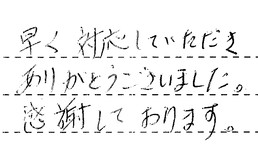 早く対応していただき
ありがとうございました。
感謝しております。